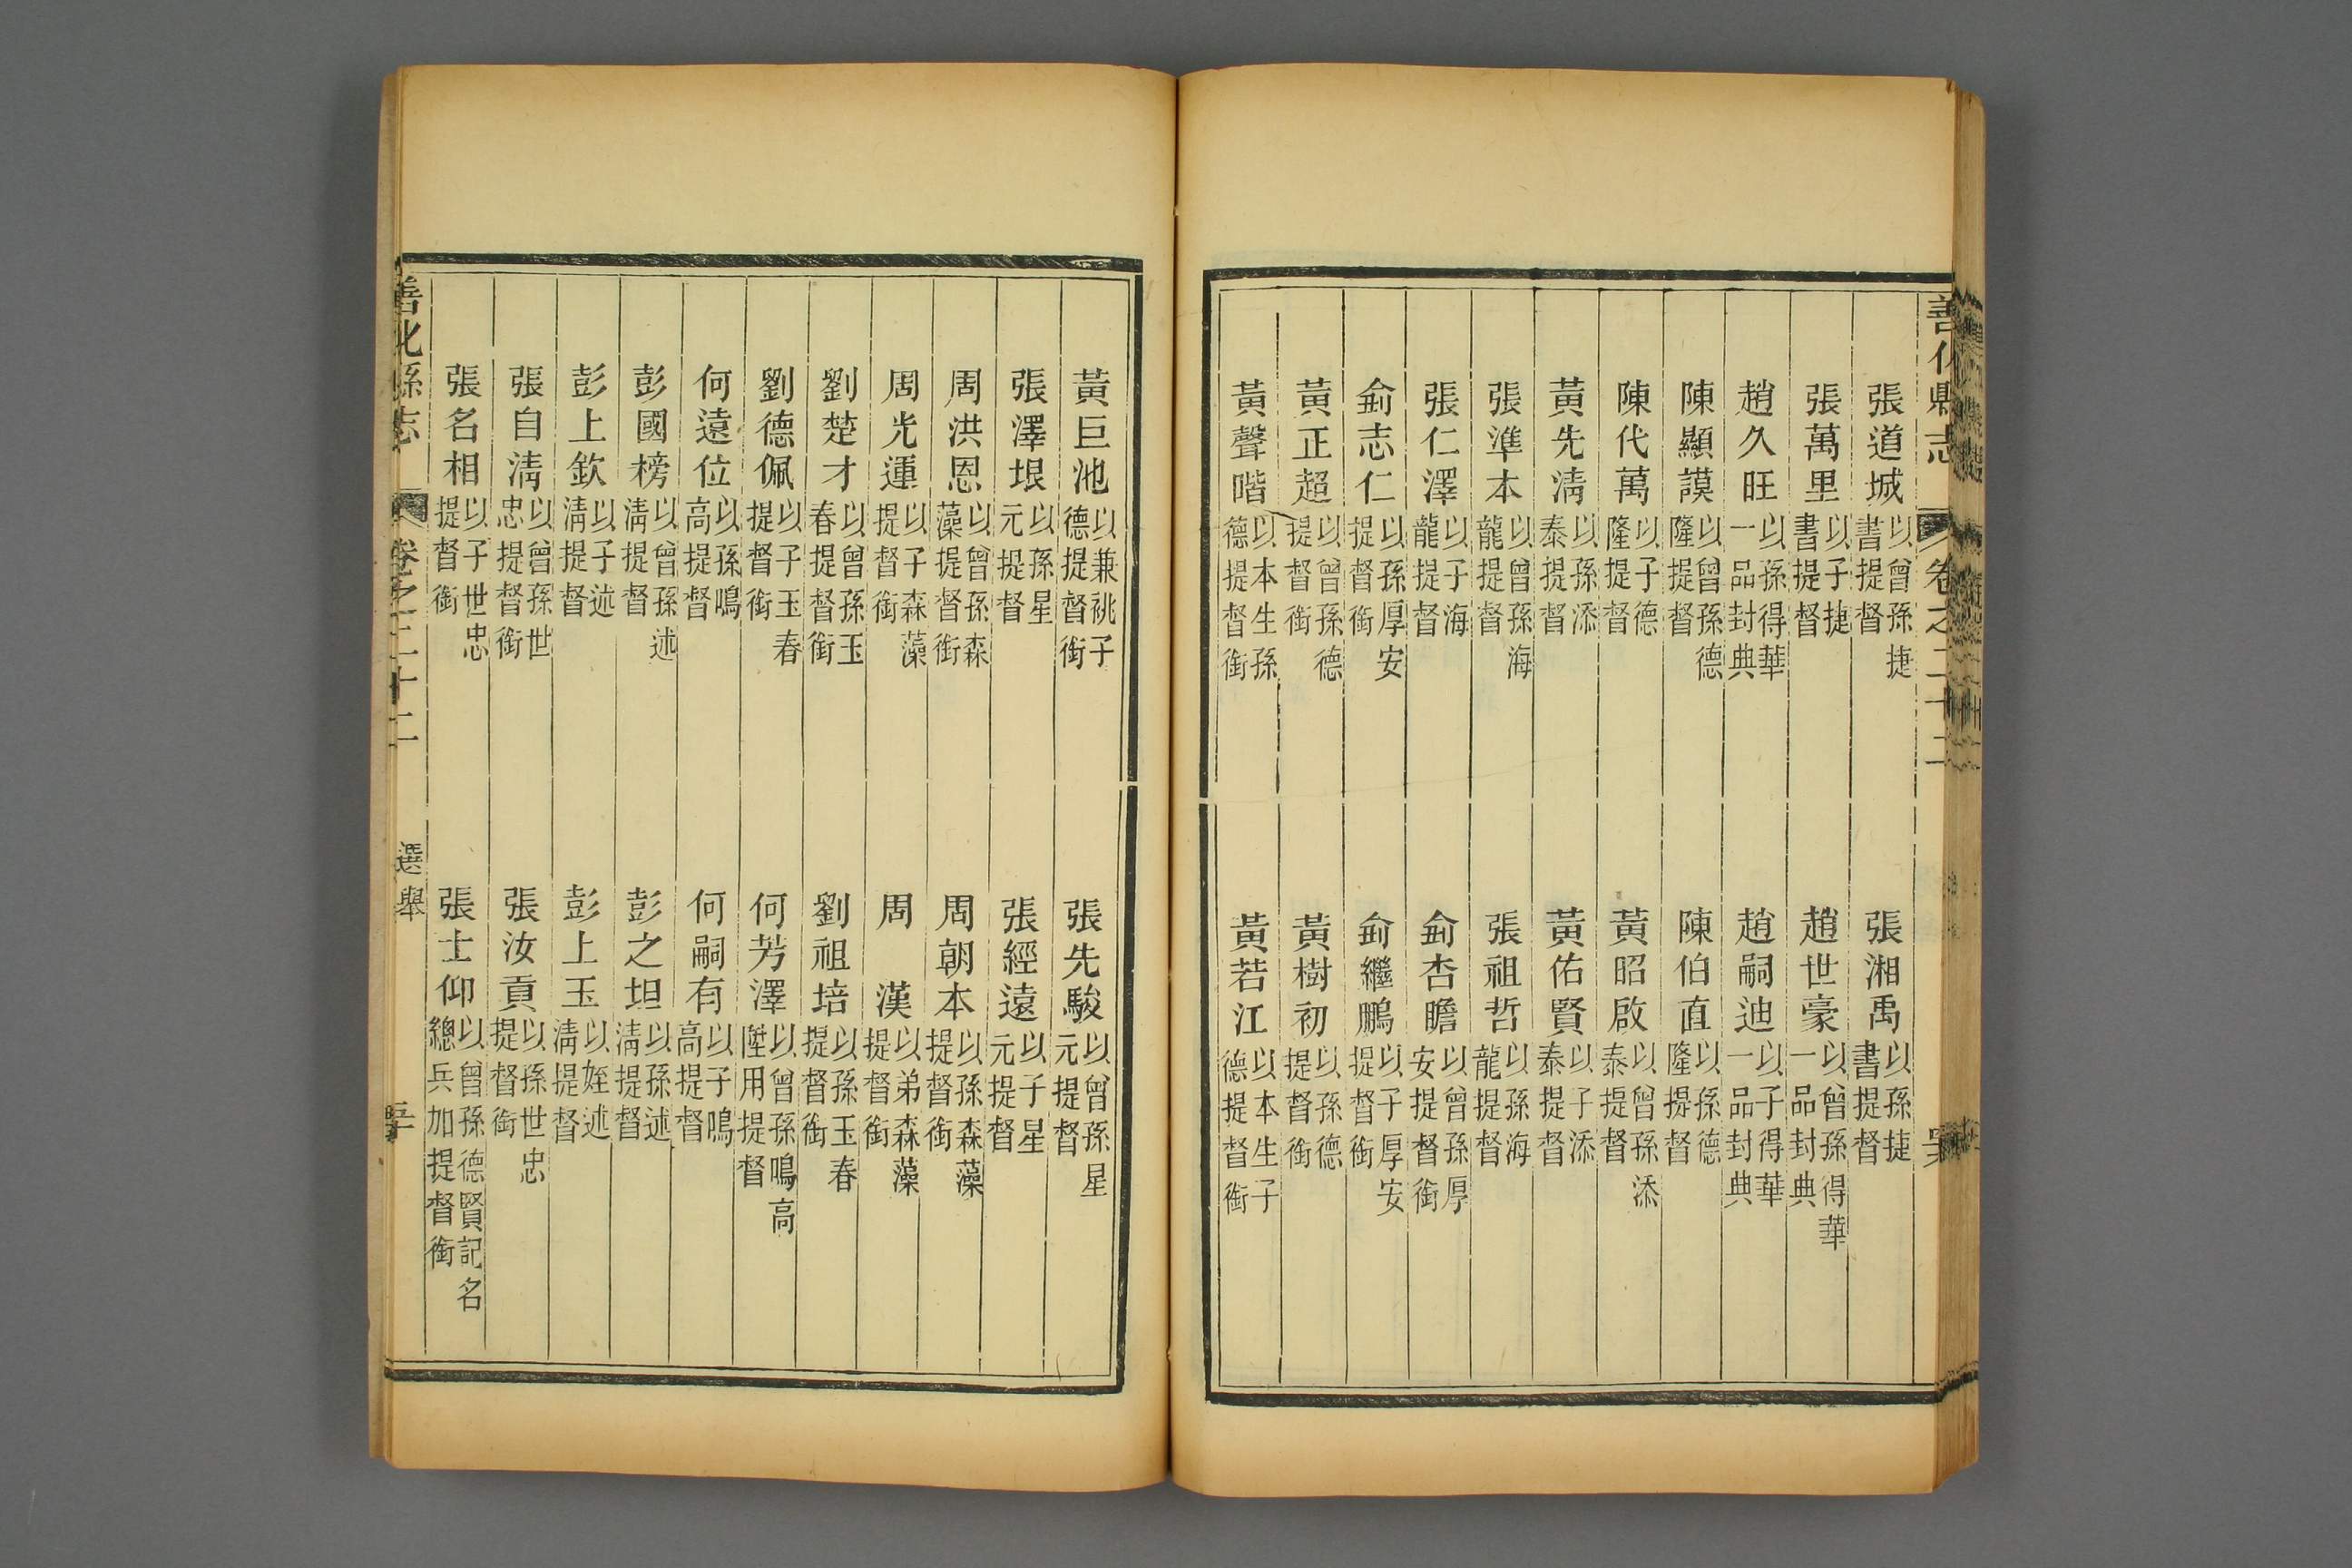 善化縣志 卷之二十二
張道城 以曾孫捷書提督 張湘禹 以孫捷書提督
張萬里 以子捷書提督 趙世豪 以曾孫得華一品封典
趙久旺 以孫得華一品封典 趙嗣迪 以子得華一品封典
陳顯謨 以曾孫德隆提督 陳伯直 以孫德隆提督
陳代萬 以子德隆提督 黃昭啟 以曾孫添泰提督
黃先淸 以孫添泰提督 黃佑賢 以子添泰提督
張準本 以曾孫海龍提督 張祖哲 以孫海龍提督
張仁澤 以子海龍提督 俞杏瞻 以曾孫厚安提督銜
俞志仁 以孫厚安提督銜 俞繼鵬 以子厚安提督銜
黃正超 以曾孫德提督銜 黃樹初 以孫德提督銜
黃聲喈 以本生孫德提督銜 黃若江 以本生子德提督銜
黃巨池 以兼祧子德提督銜 張先駿 以曾孫星元提督
張澤垠 以孫星元提督 張經遠 以子星元提督
周洪恩 以曾孫森藻提督銜 周朝本 以孫森藻提督銜
周光運 以子森藻提督銜 周漢 以弟森藻提督銜
劉楚才 以曾孫玉春提督銜 劉祖培 以孫玉春提督銜
劉德佩 以子玉春提督銜 何芳澤 以曾孫鳴高陞用提督
何遠位 以孫鳴高提督 何嗣有 以子鳴高提督
彭國榜 以曾孫述淸提督 彭之坦 以孫述淸提督
彭上欽 以子述淸提督 彭上玉 以姪述淸提督
張自淸 以曾孫世忠提督銜 張汝貢 以孫世忠提督銜
張名相 以子世忠提督銜 張士仰 以曾孫德賢記名總兵加提督銜
善化縣志 卷之二十二 選舉